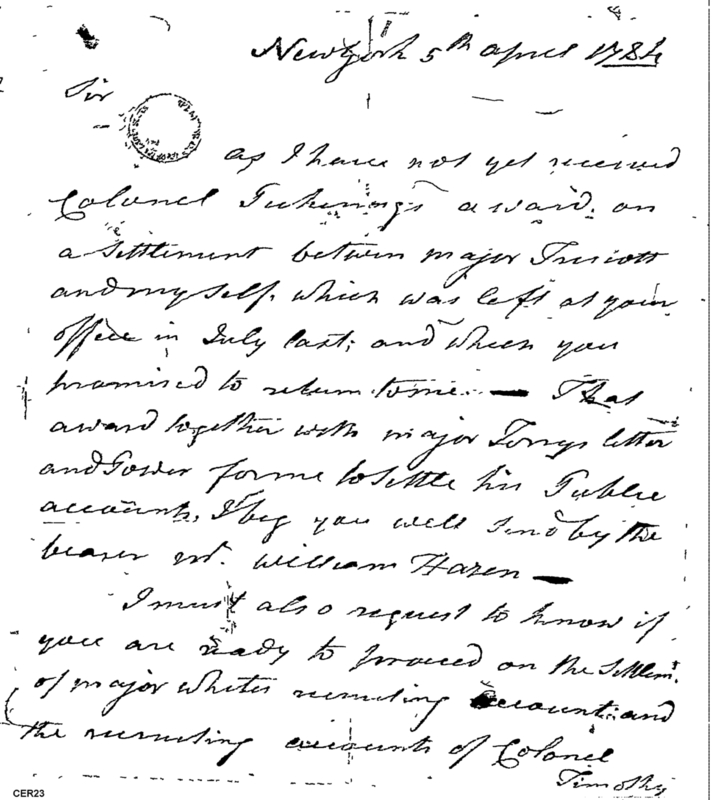 New york 5th april 1784
Sir
as I have not yet received
Colonel Pickerings award, on
a settlement between major Prescott
and my self, which was left at your
office in July last; and which you
promised to return to me. — That
award together with major Torrys letter
and Power for me to settle his Public
accounts, I beg you will send by the
bearer mr. William Hazen —
I must also request to know if
you are ready to proceed on the Settlemt.
of major Whites recruiting account: and
the recruiting accounts of Colonel
Timothy
CER23